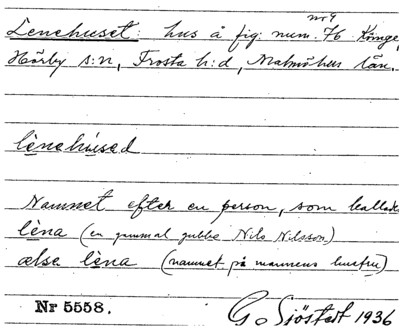 Lenehuset: hus å fig: num. 76 nr 9 Köinge,
Hörby s:n, Frosta h:d, Malmöhus län.
lènahúsad
Namnet efter en person, som kallades
lèna (en gammal gubbe Nils Nilsson)
else lèna (namnet på mannens hustru)
Nr 5558.
G. Sjöstedt 1936